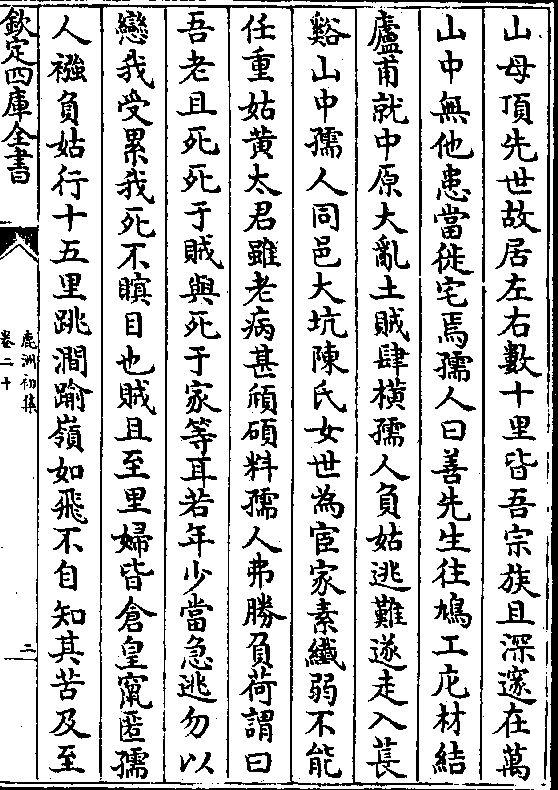 山母頂先世故居左右數十里皆吾宗族且深邃在萬
山中無他患當徙宅焉孺人曰善先生往鳩工庀材結
廬甫就中原大亂土賊肆橫孺人負姑逃難遂走入萇
谿山中孺人同邑大坑陳氏女世為宦家素纖弱不能
任重姑黃太君雖老病甚頎碩料孺人弗勝負荷謂曰
吾老且死死于賊與死于家等耳若年少當急逃勿以
戀我受累我死不瞑目也賊且至里婦皆倉皇竄匿孺
人襁負姑行十五里跳澗踰嶺如飛不自知其苦及至
欽定四庫全書
鹿洲初集
卷二十
二